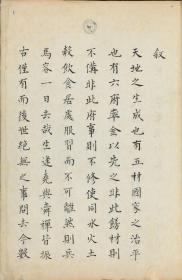 敘
天地之生成也有五材國家之治平
也有六府率金以先之非此餝材則
不備非此府事則不修使同水火土
穀飲食居處服習而不可離然則兵
焉容一日去哉生逢堯舜禪皆振
古僅有而後世絶無之事間去今數